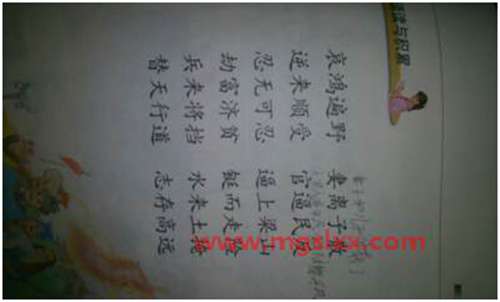 读与积累
哀鸿遍野 妻离子散
逆来顺受 官逼民反
忍无可忍 逼上梁山
劫富济贫 铤而走险
兵来将挡 水来土掩
替天行道 志存高远
www.mgslxx.com